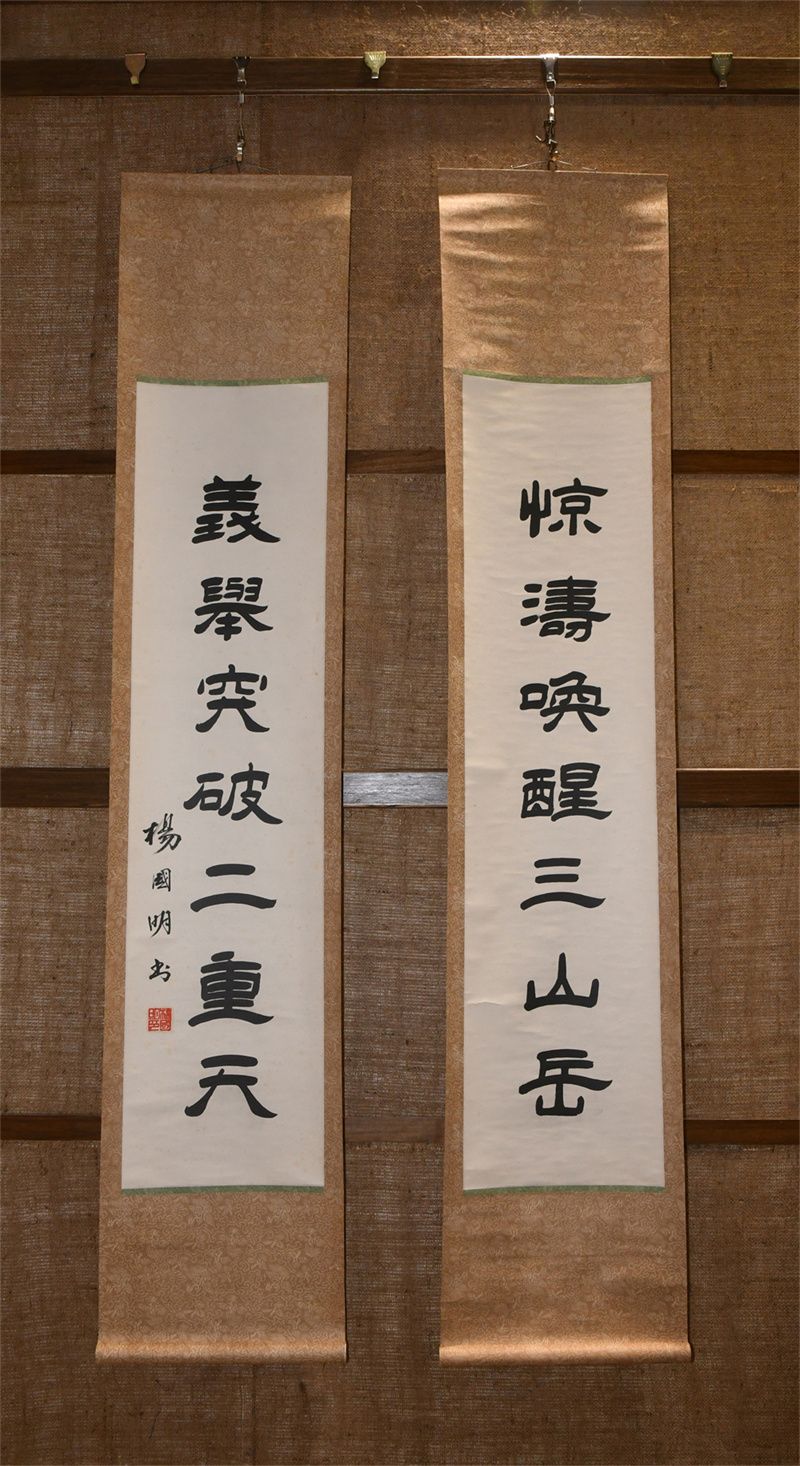 惊濤唤醒三山岳
義舉突破二重天
楊國明书